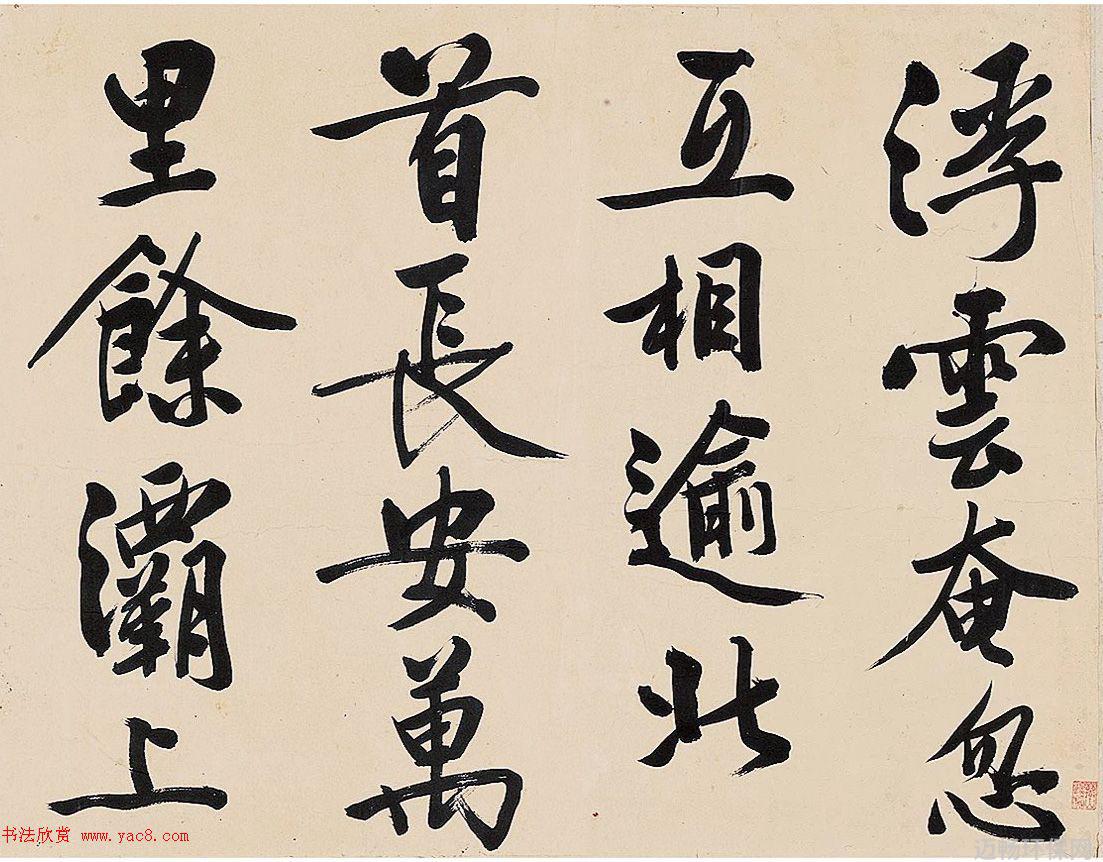 浮雲奄忽
互相逾北
首長安萬
里餘灞上
书法欣赏 www.yac8.com
迈畅环保网